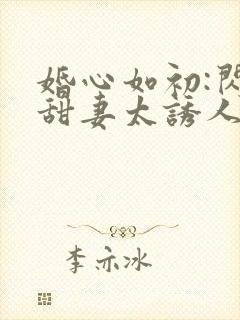 婚心如初:閃
甜妻太誘人
李亦冰